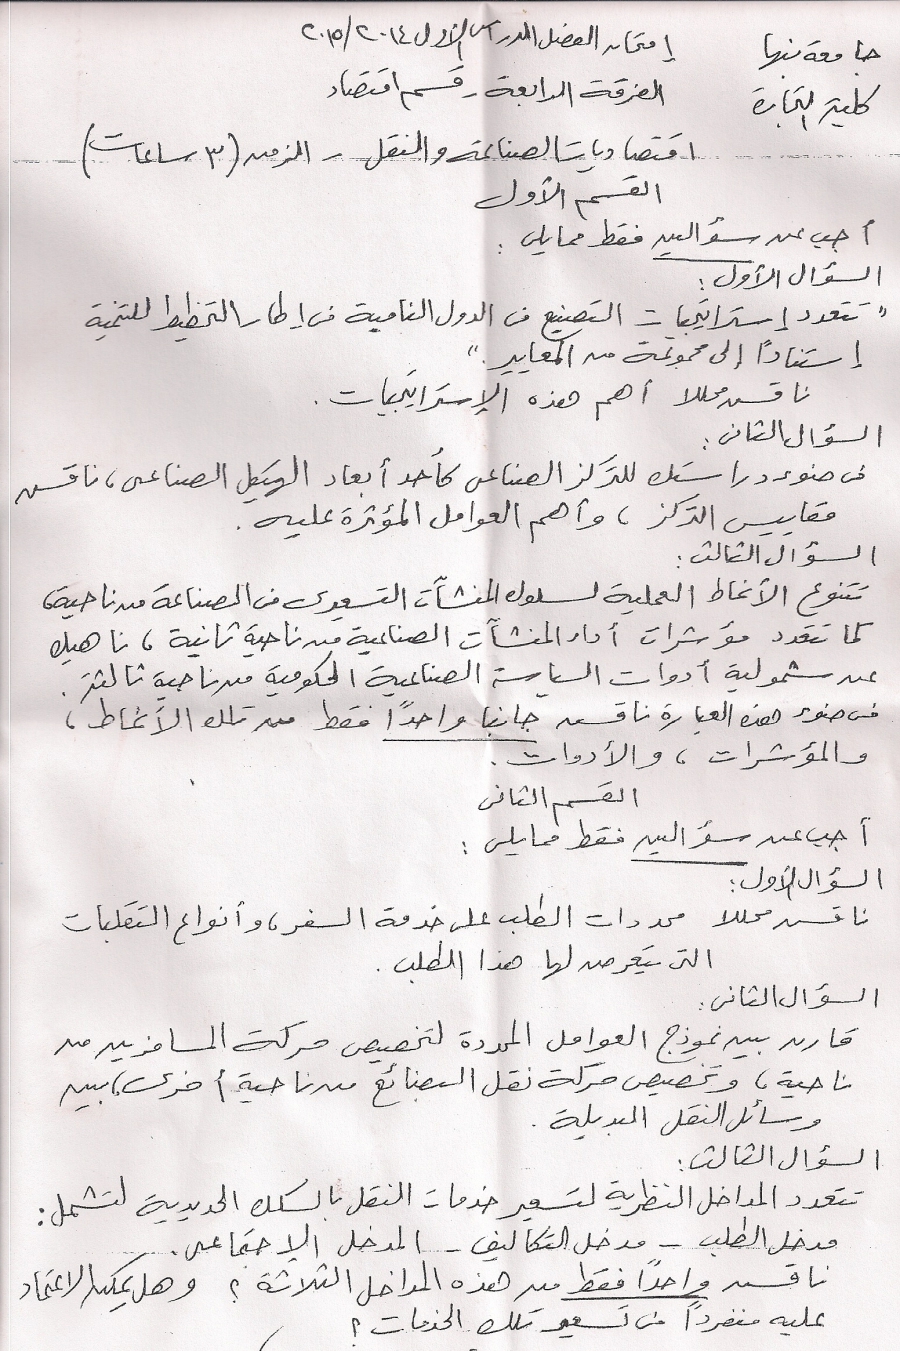 جامعة بنها
إمتحان الفصل الدراسى الأول ٢٠١٤/٢٠١٥
كلية التجارة
الفرقة الرابعة - قسم اقتصاد
اقتصاديات الصناعة والنقل - الزمن (٣ ساعات)
القسم الأول
أجب عن سؤالين فقط مما يلى :
السؤال الأول :
" تتعدد إستراتيجيات التصنيع فى الدول النامية فى إطار التخطيط للتنمية
إستناداً إلى مجموعة من المعايير . "
ناقش محللا أهم هذه الإستراتيجيات .
السؤال الثانى :
فى ضوء دراستك للتركز الصناعى كأحد أبعاد الهيكل الصناعى ، ناقش
مقاييس التركز ، وأهم العوامل المؤثرة عليه .
السؤال الثالث :
تتنوع الأنماط العملية لسلوك المنشآت التسعيرى فى الصناعة من ناحية ،
كما تتعدد مؤشرات أداء المنشآت الصناعية من ناحية ثانية ، ناهيك
عن شمولية أدوات السياسة الصناعية الحكومية من ناحية ثالثة .
فى ضوء هذه العبارة ناقش جانبا واحدًا فقط من تلك الأنماط ،
والمؤشرات ، والأدوات .
القسم الثانى
أجب عن سؤالين فقط مما يلى :
السؤال الأول :
ناقش محللا محددات الطلب على خدمة السفر ، وأنواع التقلبات
التى يتعرض لها هذا الطلب .
السؤال الثانى :
قارن بين نموذج العوامل المحددة لتخصيص حركة المسافرين من
ناحية ، وتخصيص حركة نقل البضائع من ناحية أخرى ، بين
وسائل النقل البديلة .
السؤال الثالث :
تتعدد المداخل النظرية لتسعير خدمات النقل بالسكك الحديدية لتشمل :
مدخل الطلب - مدخل التكاليف - المدخل الإجتماعى .
ناقش واحدًا فقط من هذه المداخل الثلاثة ؟ وهل يمكن الاعتماد
عليه منفرداً فى تسعير تلك الخدمات ؟